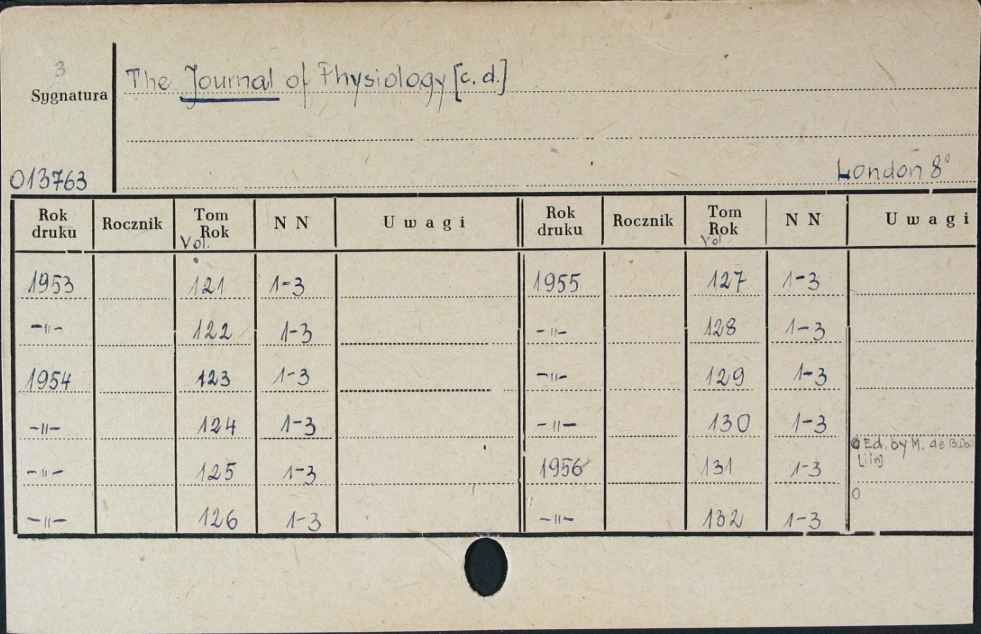 3
Sygnatura
The Journal of Physiology [c. d.]
013763
London 8°
Rok druku Rocznik Tom Rok Vol. N N Uwagi Rok druku Rocznik Tom Rok Vol. N N Uwagi
1953 121 1-3 1955 127 1-3
-〃- 122 1-3 -〃- 128 1-3
1954 123 1-3 -〃- 129 1-3
-〃- 124 1-3 -〃- 130 1-3
Ed. by M. de
-〃- 125 1-3 1956 131 1-3
-〃- 126 1-3 -〃- 132 1-3